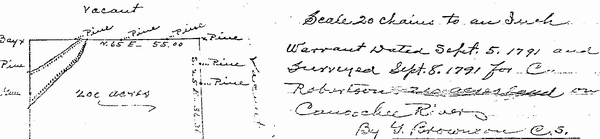 Vacant
Pine Pine Pine
Bay x Pine
N. 65 E 55.00
Pine Pine
Pine
Vacant
200 acres
Scale 20 chains to an Inch
Warrant Dated Sept. 5. 1791 and
Surveyed Sept. 8. 1791 for C
Robertson on
Canoochee River
By G. Brownson C.S.